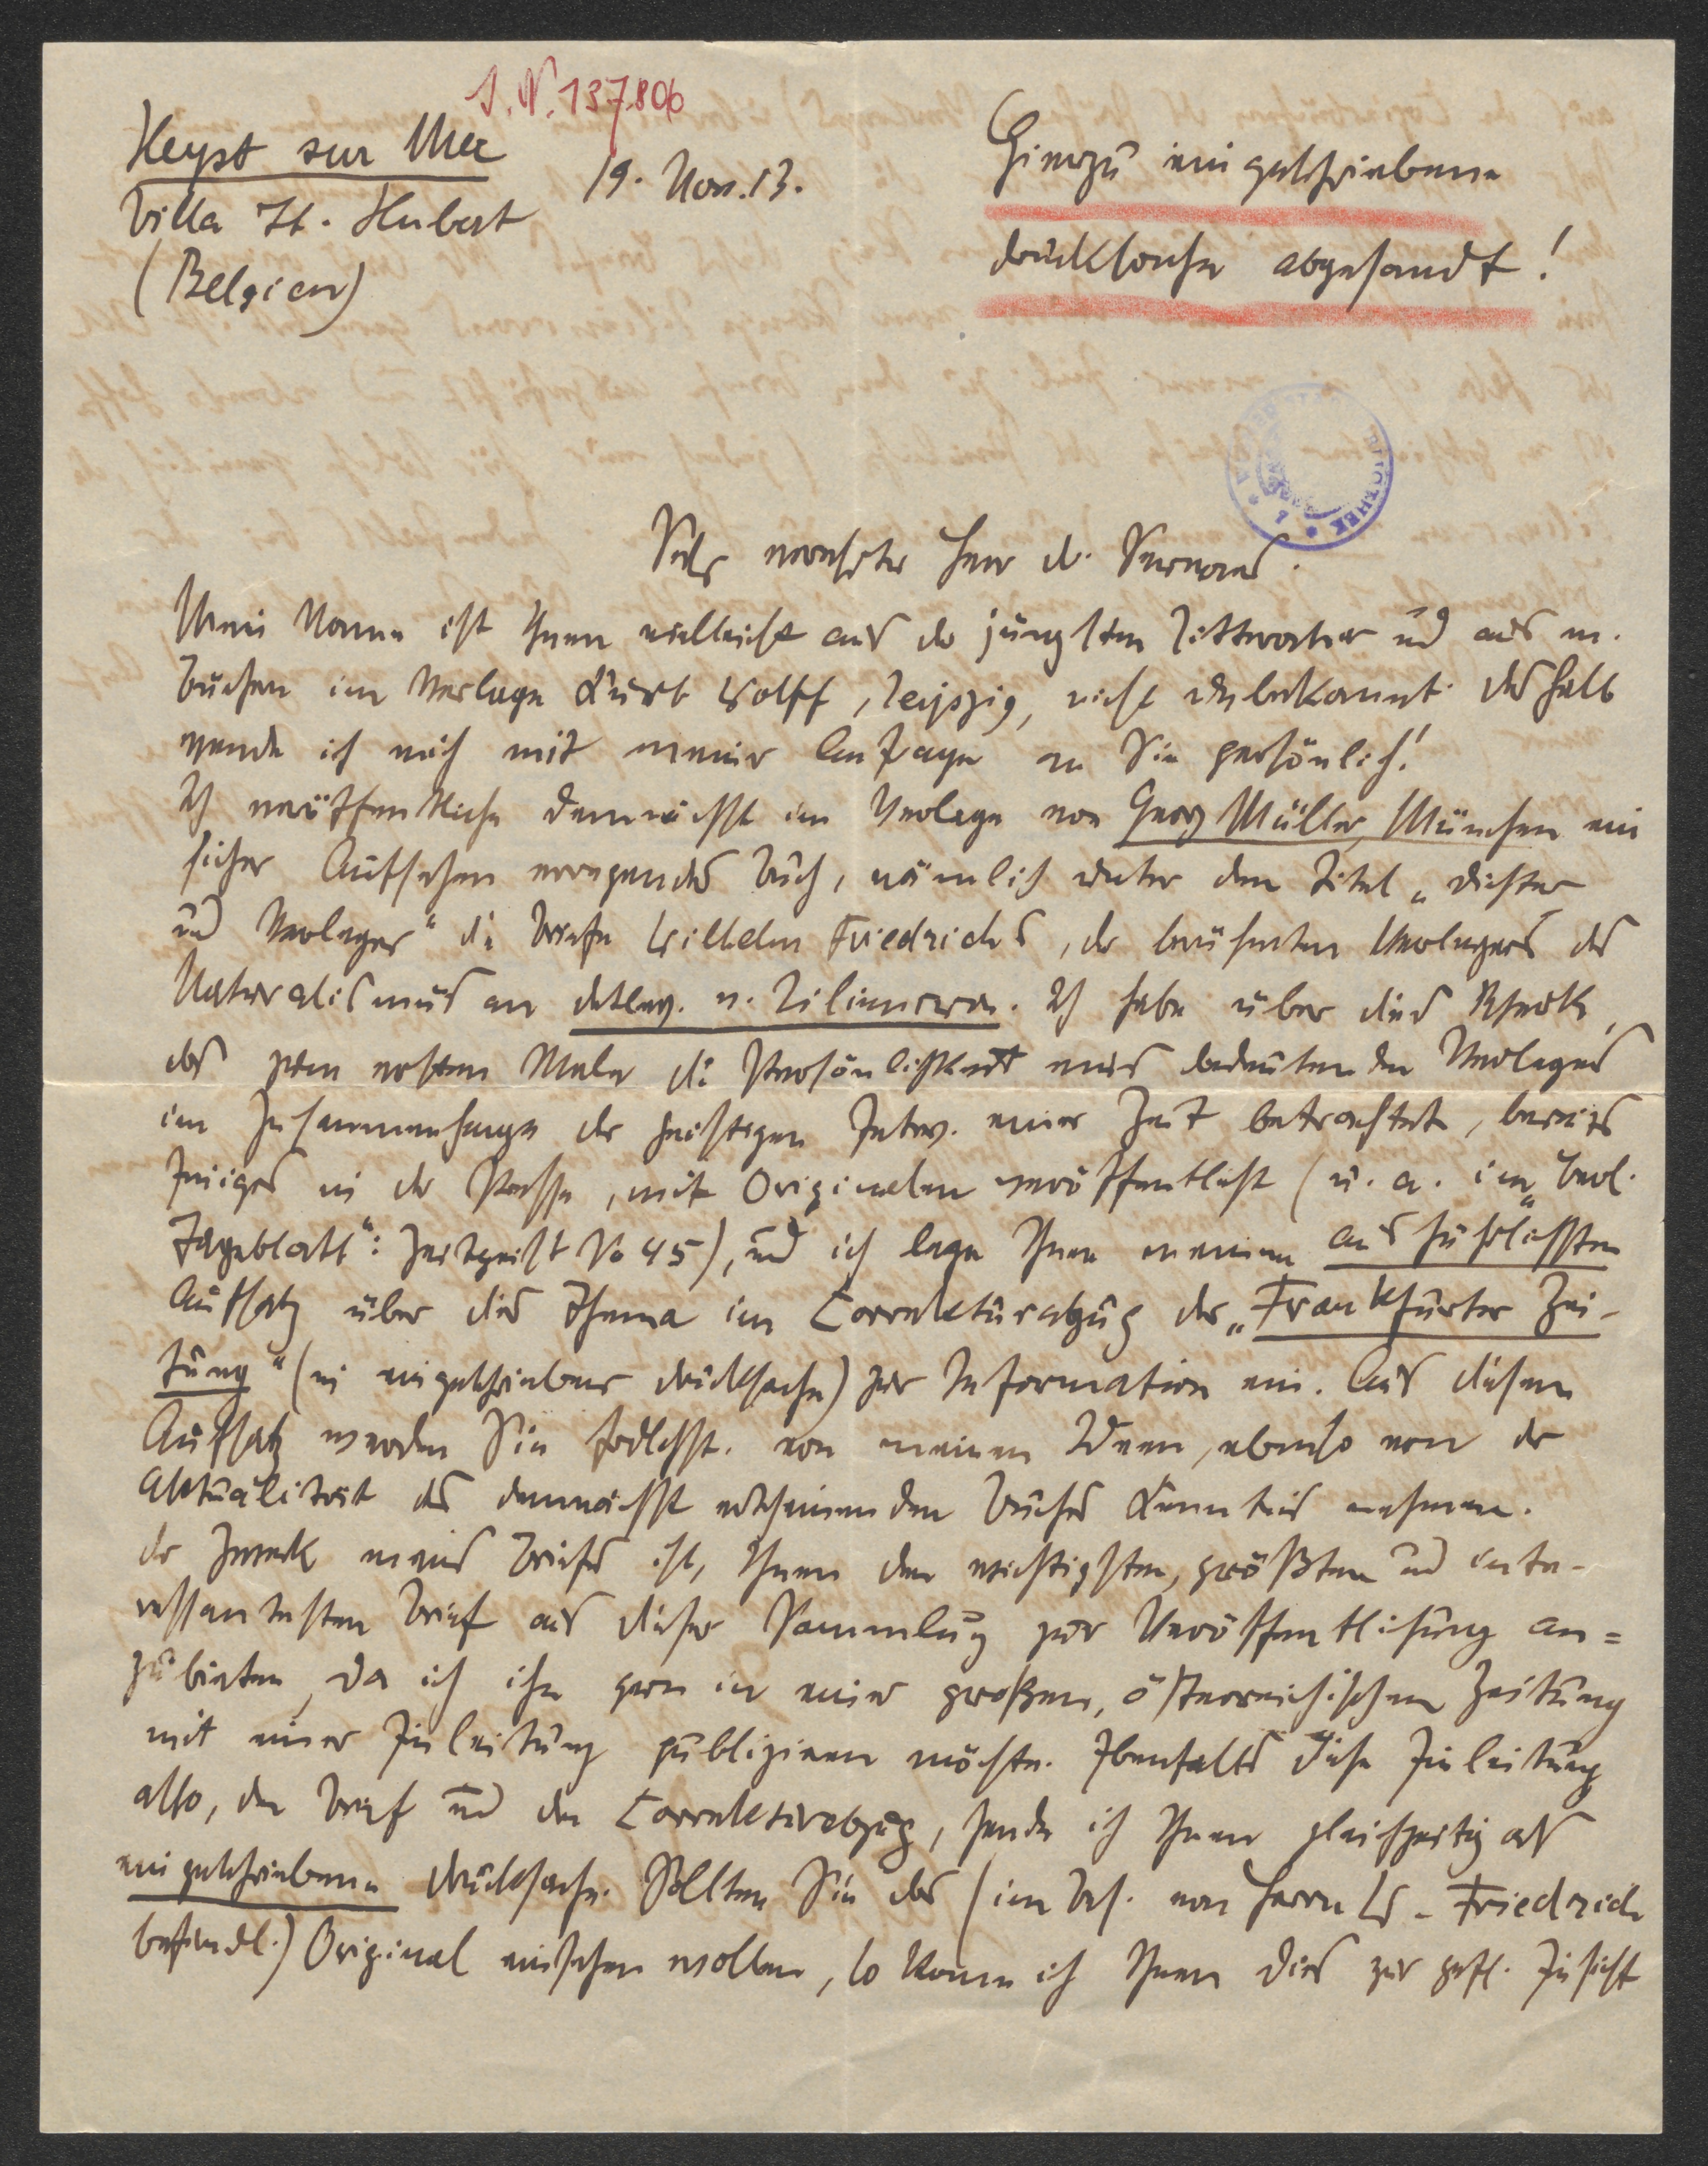 I. N. 137.806
Heyst sur Mer
Villa St. Hubert
(Belgien)
19. Nov. 13.
Hierzu eingeschriebene
Drucksache abgesandt!
Sehr verehrter Herr Dr. Servaes.
Mein Name ist Ihnen vielleicht aus der jüngsten Literatur und aus m.
Büchern im Verlage Kurt Wolff, Leipzig, nicht unbekannt. Deshalb
wende ich mich mit meiner Anfrage an Sie persönlich!
Ich veröffentliche demnächst im Verlage von Georg Müller, München ein
sicher Aufsehen erregendes Buch, nämlich unter dem Titel „Dichter
und Verleger“ die Briefe Wilhelm Friedrichs, des berühmten Verlegers des
Naturalismus an Detlev. v. Liliencron. Ich habe über dies Werk,
das zum ersten Male die Persönlichkeit eines bedeutenden Verlegers
im Zusammenhange der geistigen Entw. einer Zeit betrachtet, bereits
Einiges in der Presse, mit Originalen veröffentlicht (u. a. im „Berl.
Tageblatt“: Zeitgeist No 45), und ich lege Ihnen meinen ausführlichsten
Aufsatz über dies Thema im Correkturabzug der „Frankfurter Zei-
tung“ (in eingeschriebener Drucksache) zur Information ein. Aus diesem
Aufsatz werden Sie frdlchst. von meinen Ideen, ebenso von der
Aktualität des demnächst erscheinenden Buches Kenntnis nehmen.
Der Zweck meines Briefes ist, Ihnen den wichtigsten, größten und inte-
ressantesten Brief aus dieser Sammlung zur Veröffentlichung an=
zubieten, da ich ihn gern in einer großen, österreichischen Zeitung
mit einer Einleitung publizieren möchte. Ebenfalls diese Einleitung
also, den Brief und den Correkturabzug, sende ich Ihnen gleichzeitig als
eingeschriebene Drucksache. Sollten Sie das (im Bes. von Herrn W. Friedrich
befindl.) Original einsehen wollen, so kann ich Ihnen dies zur gefl. Einsicht